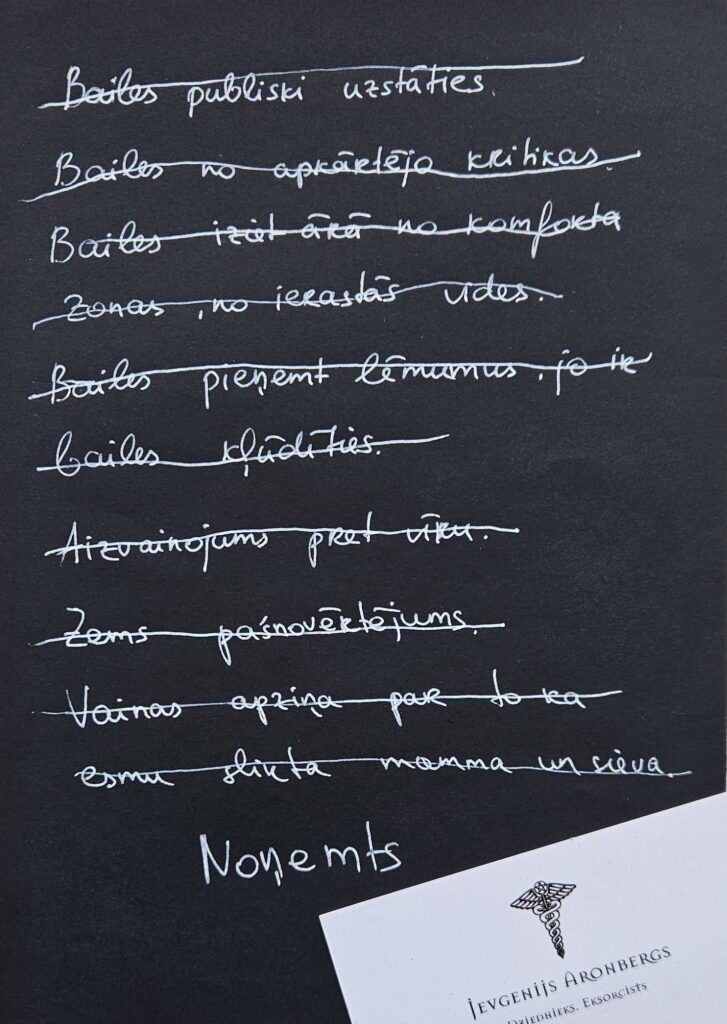 Bailes publiski uzstāties.
Bailes no apkārtējo kritikas.
Bailes iziet ārā no komforta
zonas, no ierastās vides.
Bailes pieņemt lēmumus, jo ir
bailes kļūdīties.
Aizvainojums pret vīru.
Zems pašnovērtējums.
Vainas apziņa par to ka
esmu slikta mamma un sieva.
Noņemts
Jevgenijs Aronbergs
Dziednieks, Eksorcists